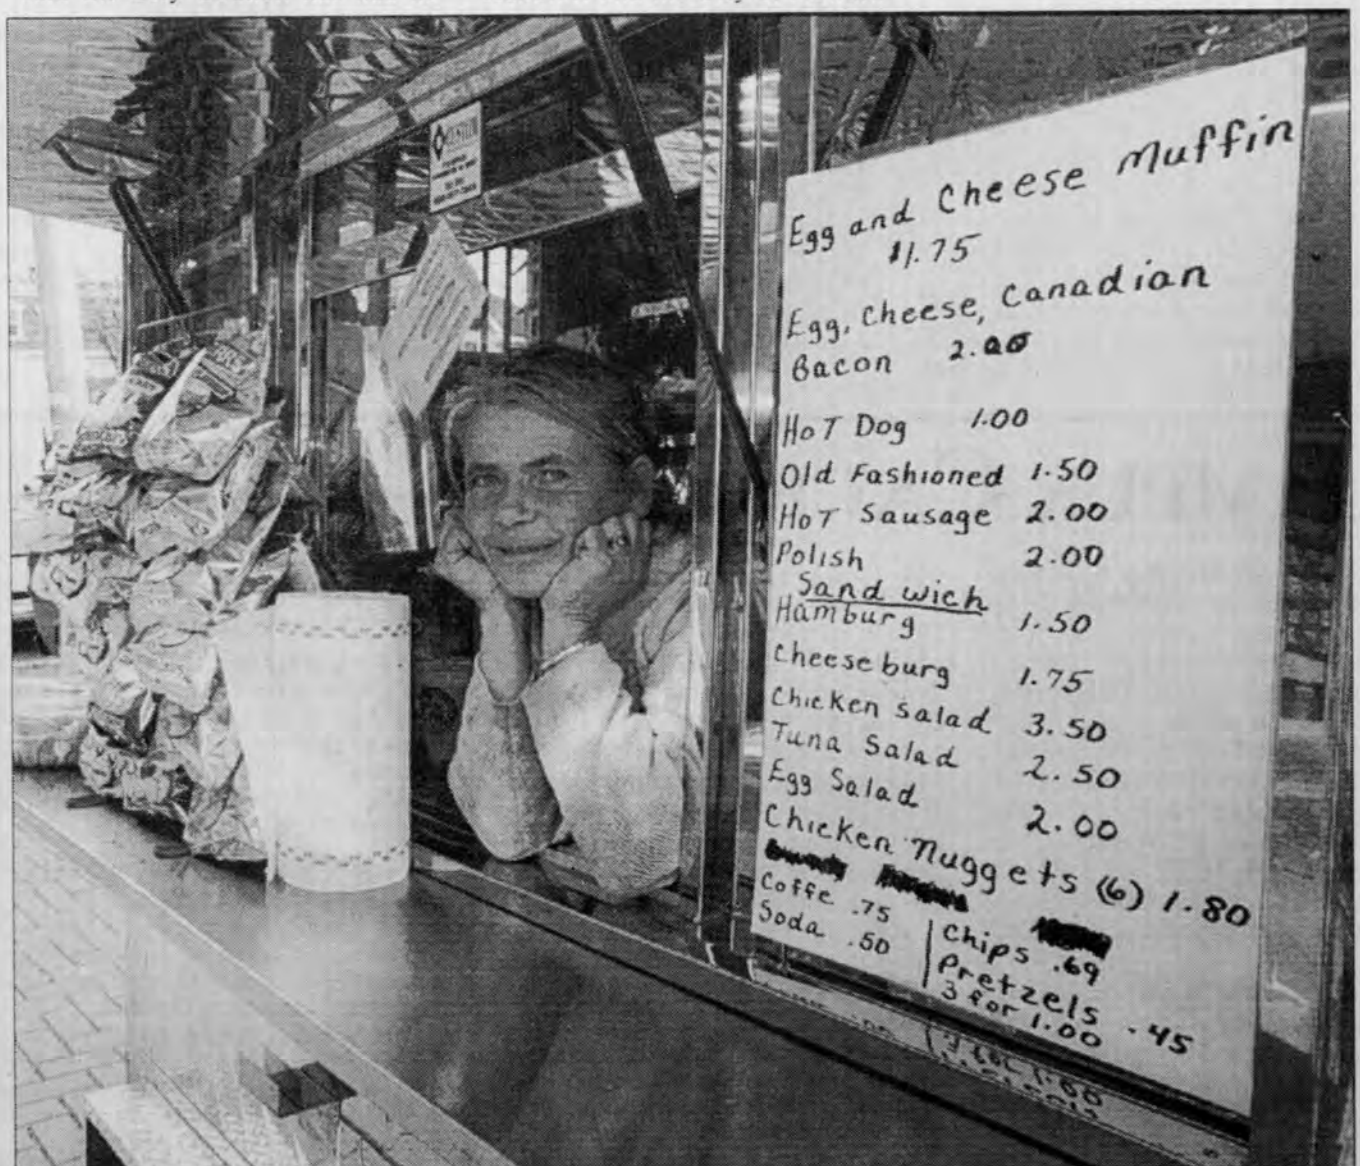 Egg and Cheese Muffin
$1.75
Egg, Cheese, Canadian
Bacon 2.00
HoT Dog 1.00
Old Fashioned 1.50
HoT Sausage 2.00
Polish 2.00
Sand wich
Hamburg 1.50
Cheeseburg 1.75
Chicken Salad 3.50
Tuna Salad 2.50
Egg Salad 2.00
Chicken Nuggets (6) 1.80
Coffe .75
Soda .50
Chips .69
Pretzels .45
3 for 1.00